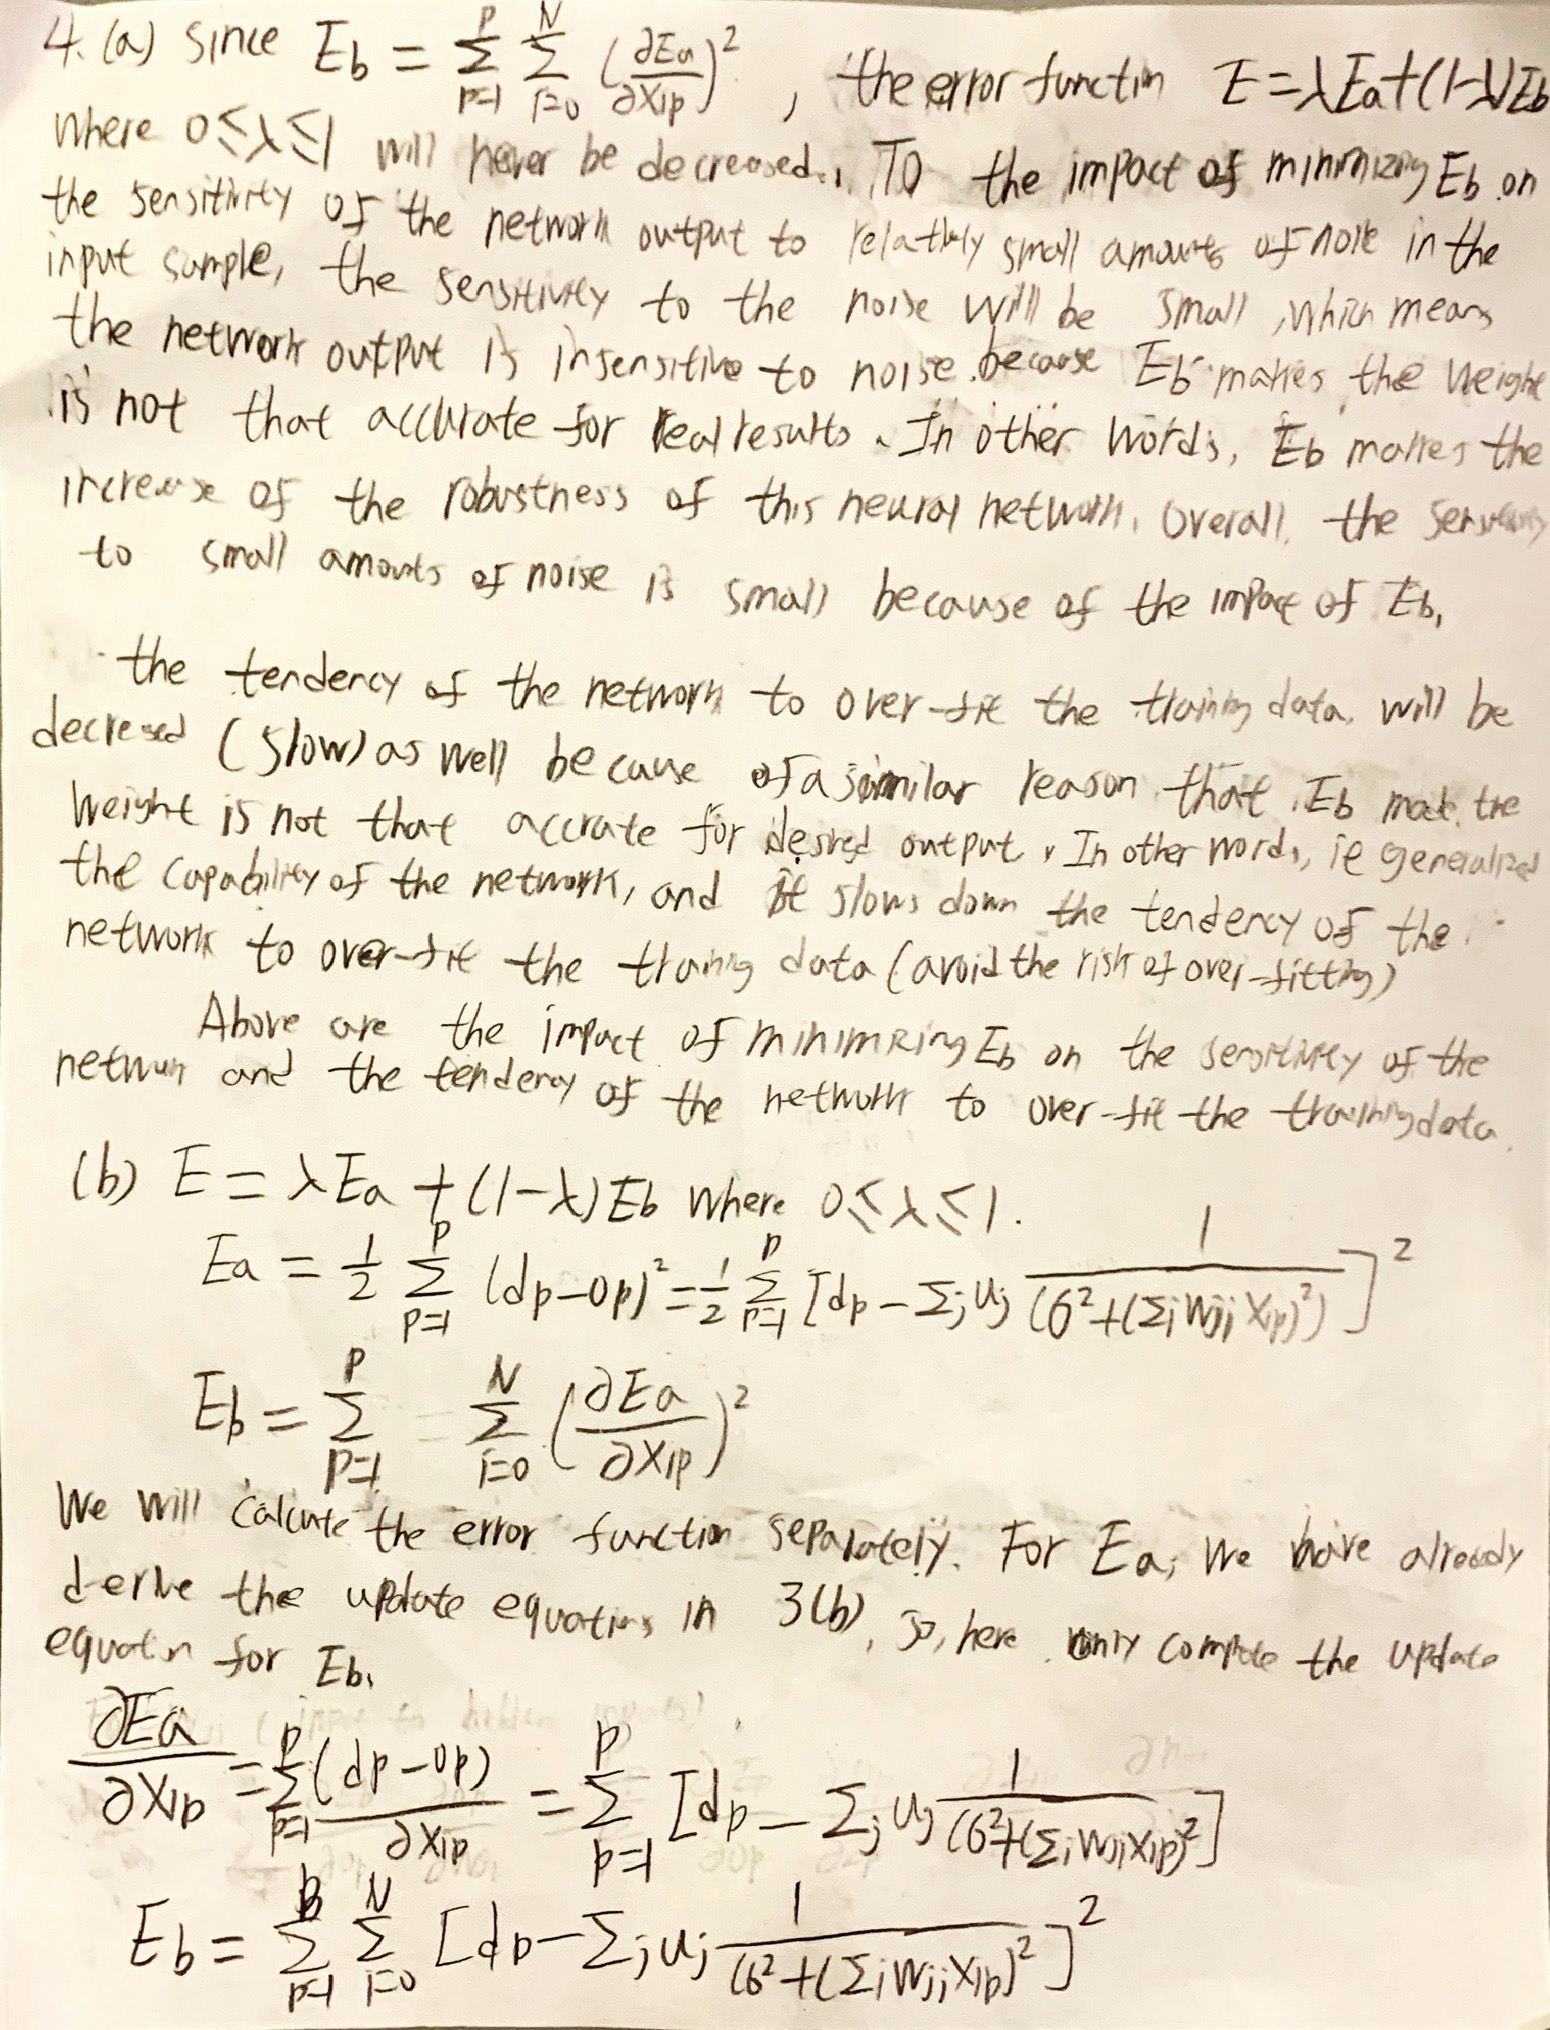 4. (a) Since Eb = Σ_{p=1}^{P} Σ_{i=0}^{N} (∂Ea/∂Xip)², the error functin E = λEa+(1-λ)Eb
where 0≤λ≤1 will never be decreased. To the impact of minimizing Eb on
the sensitivity of the network output to relatively small amounts of noise in the
input sample, the sensitivity to the noise will be small, which means
the network output is insensitive to noise because Eb makes the weight
is not that accurate for real results. In other words, Eb makes the
increase of the robustness of this neural network. Overall, the sensitivity
to small amounts of noise is small because of the impact of Eb,
the tendency of the network to over-fit the training data will be
decreased (slow) as well because of a similar reason that Eb made the
weight is not that accrate for desired output. In other words, it generalized
the capability of the network, and it slows down the tendency of the
network to over-fit the training data (avoid the risk of over-fitting)
Above are the impact of minimizing Eb on the sensitivity of the
network and the tendency of the network to over-fit the training data.
(b) E = λEa + (1-λ)Eb where 0≤λ≤1.
Ea = 1/2 Σ_{p=1}^{P} (dp-Op)² = 1/2 Σ_{p=1}^{P} [dp - Σj uj 1/(6²+(Σi Wji Xip)²)]²
Eb = Σ_{p=1}^{P} Σ_{i=0}^{N} (∂Ea/∂Xip)²
We will calcute the error function separately. For Ea, we have already
derive the update equations in 3(b), so, here only compute the update
equatin for Eb.
∂Ea/∂Xip = Σ_{p=1}^{P} (dp-Op)/∂Xip = Σ_{p=1}^{P} [dp - Σj uj 1/(6²+(Σi Wji Xip)²]
Eb = Σ_{p=1}^{P} Σ_{i=0}^{N} [dp - Σj uj 1/(6²+(Σi Wji Xip)²]²